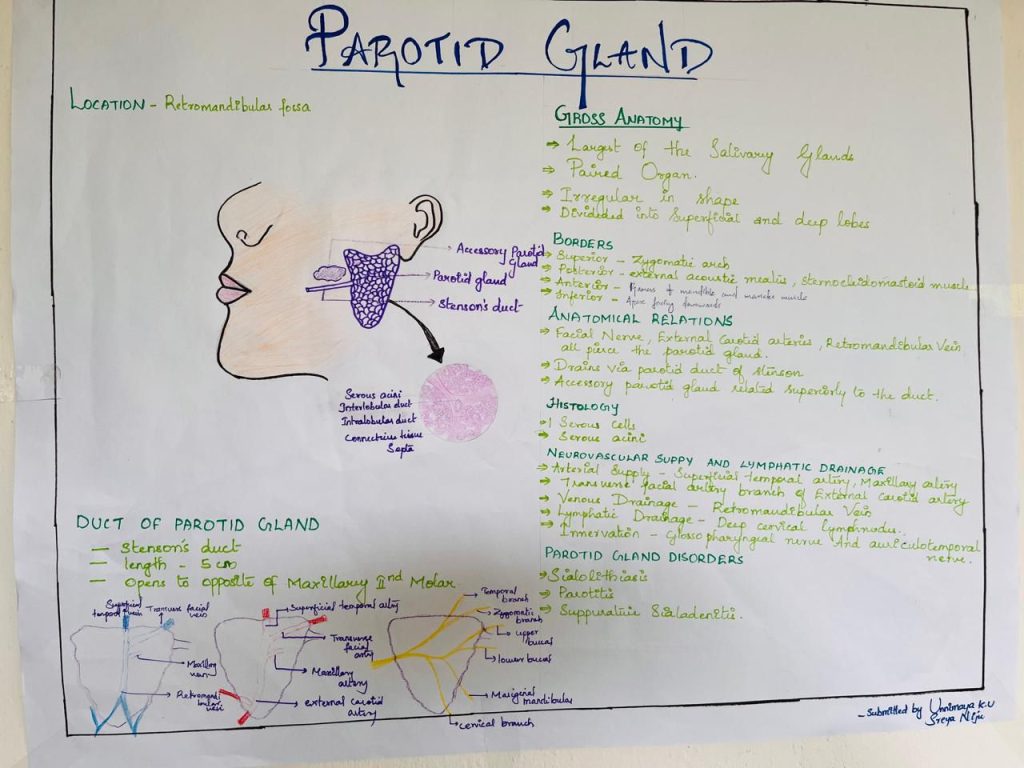 PAROTID GLAND
LOCATION - Retromandibular fossa
Accessory Parotid
Gland
Parotid gland
Stenson's duct
Serous acini
Interlobular duct
Intralobular duct
Connective tissue
Septa
DUCT OF PAROTID GLAND
— Stenson's duct
— length - 5 cm
— Opens to opposite of Maxillary IInd Molar.
Superficial
temporal vein
Transverse facial
vein
Maxillary
vein
Retromandi
bular
Superficial temporal artery
Transverse
facial
artery
Maxillary
artery
external carotid
artery
Temporal
branch
Zygomatic
branch
upper
buccal
lower buccal
Marginal
mandibular
cervical branch
GROSS ANATOMY
⇒ Largest of the Salivary Glands
⇒ Paired Organ.
⇒ Irregular in shape
⇒ Divideded into Superficial and deep lobes
BORDERS
⇒ Superior - Zygomatic arch
⇒ Posterior - external acoustic meatus, sternocleidomastoid muscle
⇒ Anterior - Ramus of mandible and masseter muscle
⇒ Inferior - Apex facing downwards
ANATOMICAL RELATIONS
⇒ Facial Nerve, External Carotid arteries, Retromandibular Vein
all pierce the parotid gland.
⇒ Drains via parotid duct of stenson
⇒ Accessory parotid gland related superiorly to the duct.
HISTOLOGY
Serous Cells
⇒ Serous acini
NEUROVASCULAR SUPPY AND LYMPHATIC DRAINAGE
⇒ Arterial Supply - Superficial temporal artery, Maxillary artery
⇒ Transverse facial artery branch of External Carotid artery
⇒ Venous Drainage - Retromandibular Vein
⇒ Lymphatic Drainage - Deep cervical lymphnodes.
⇒ Innervation - Glossopharyngial nerve And auriculotemporal
nerve.
PAROTID GLAND DISORDERS
⇒ Sialolithiasis
⇒ Parotitis
⇒ Suppurative Sialadenitis.
- Submitted by Unnimaya K.U
Sreya Niju